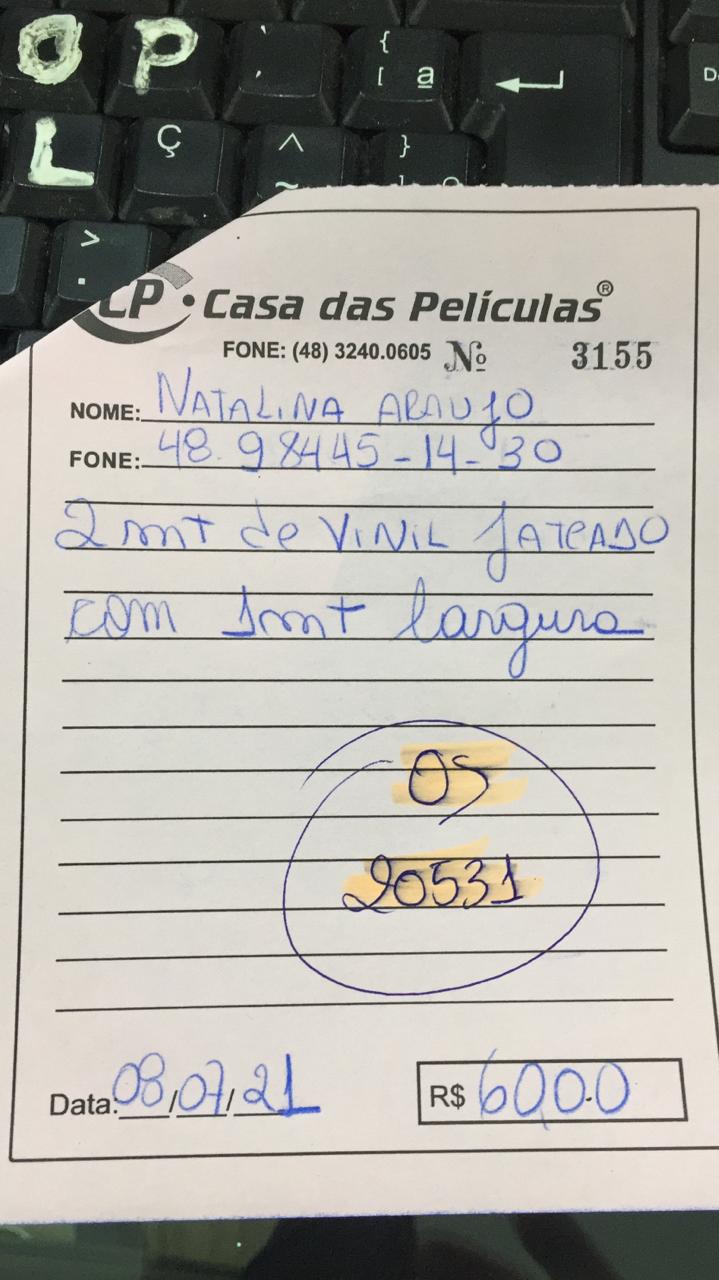 O P ` { [ ª
L Ç ^ ~ }
> .
CP · Casa das Películas®
FONE: (48) 3240.0605 Nº 3155
NOME: NATALINA ARAUJO
FONE: 48.98445-14-30
2 mt de VINIL JATEADO
com 1mt largura
OS
20531
Data: 08/07/21 R$ 60,00